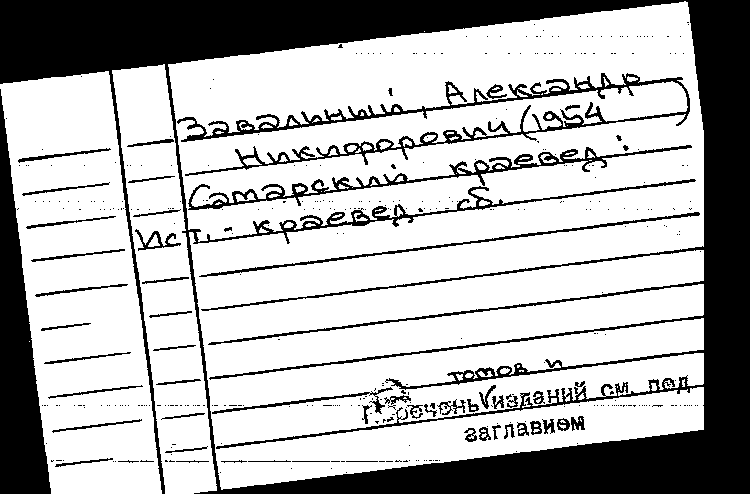 Завальный, Александр
Никифорович (1954 )
Самарский краевед :
Ист. - краевед. сб.
томов и
Перечень √ изданий см. под
заглавием